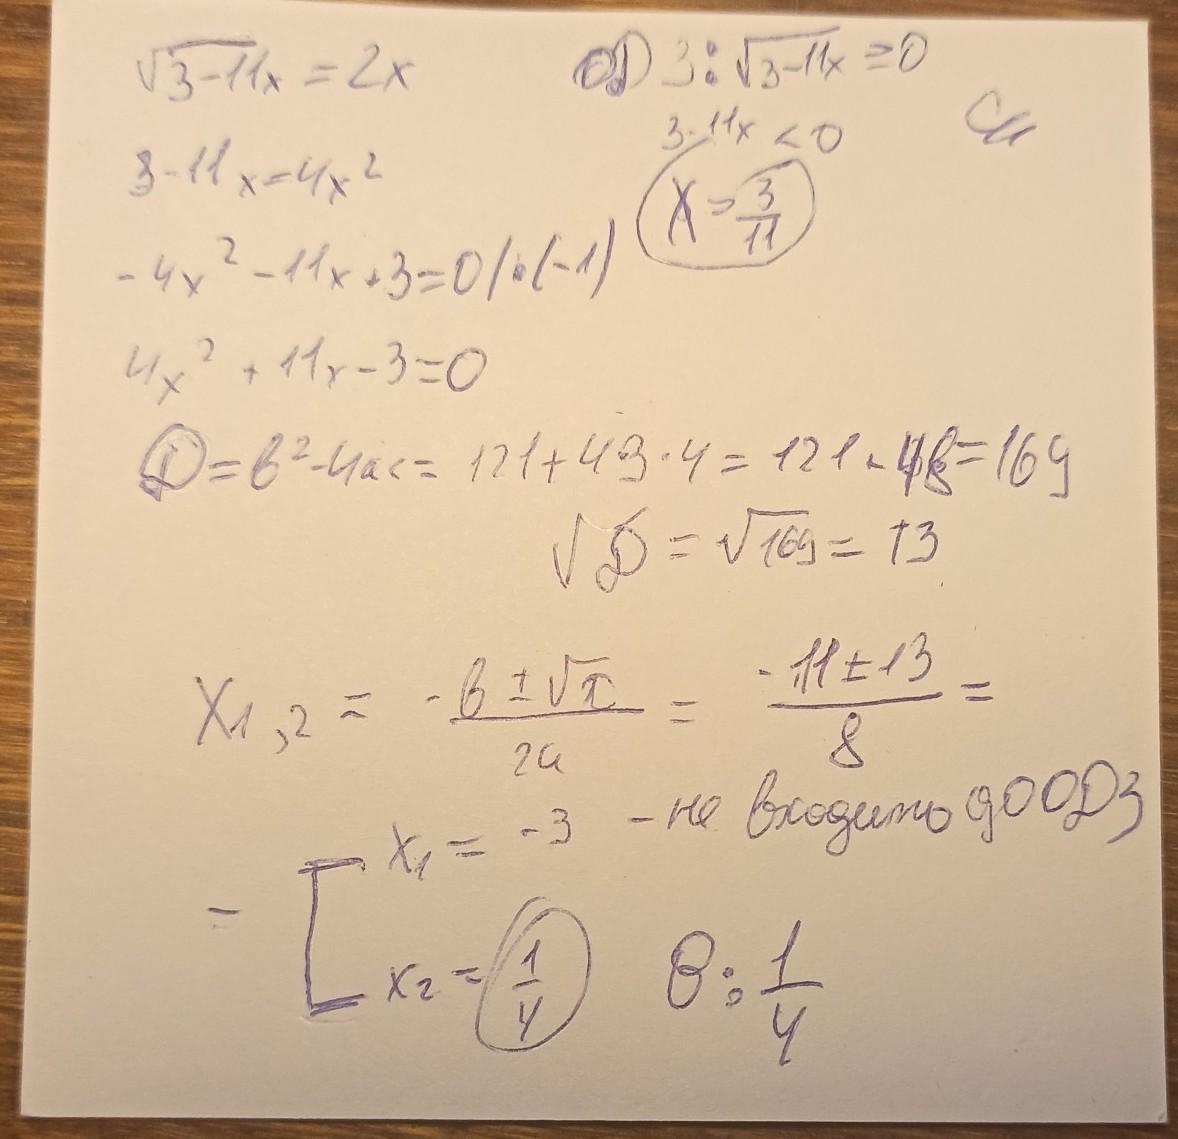 √3-11x = 2x
ОДЗ: √3-11x ≥ 0
3-11x < 0
x = 3/11
3-11x=4x²
-4x²-11x+3=0/·(-1)
4x²+11x-3=0
D=b²-4ac= 121+43·4= 121+48=169
√D = √169 = 13
x1,2 = -b±√D/2a = -11±13/8 =
= [ x1 = -3 - не входить до ОДЗ
x2 = 1/4
В: 1/4